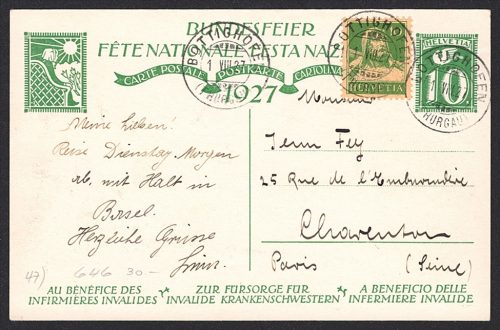 BUNDESFEIER
FÊTE NATIONALE FESTA NAZ
CARTE POSTALE POSTKARTE CARTOLINA
1927
HELVETIA
10
HELVETIA
BOTTIGHOFEN
1 VIII 27
(THURGAU)
BOTTIGHOFEN
BOTTIGHOFEN
1 VIII 27
THURGAU
Meine Lieben!
Reise Dienstag Morgen
ab, mit Halt in
Basel.
Herzliche Grüsse
47) 646 30-
Monsieur
Jenn Fey
25 Rue de l'Embarcadère
Charenton
Paris (Seine)
AU BÉNÉFICE DES
INFIRMIÈRES INVALIDES
ZUR FÜRSORGE FÜR
INVALIDE KRANKENSCHWESTERN
A BENEFICIO DELLE
INFERMIERE INVALIDE